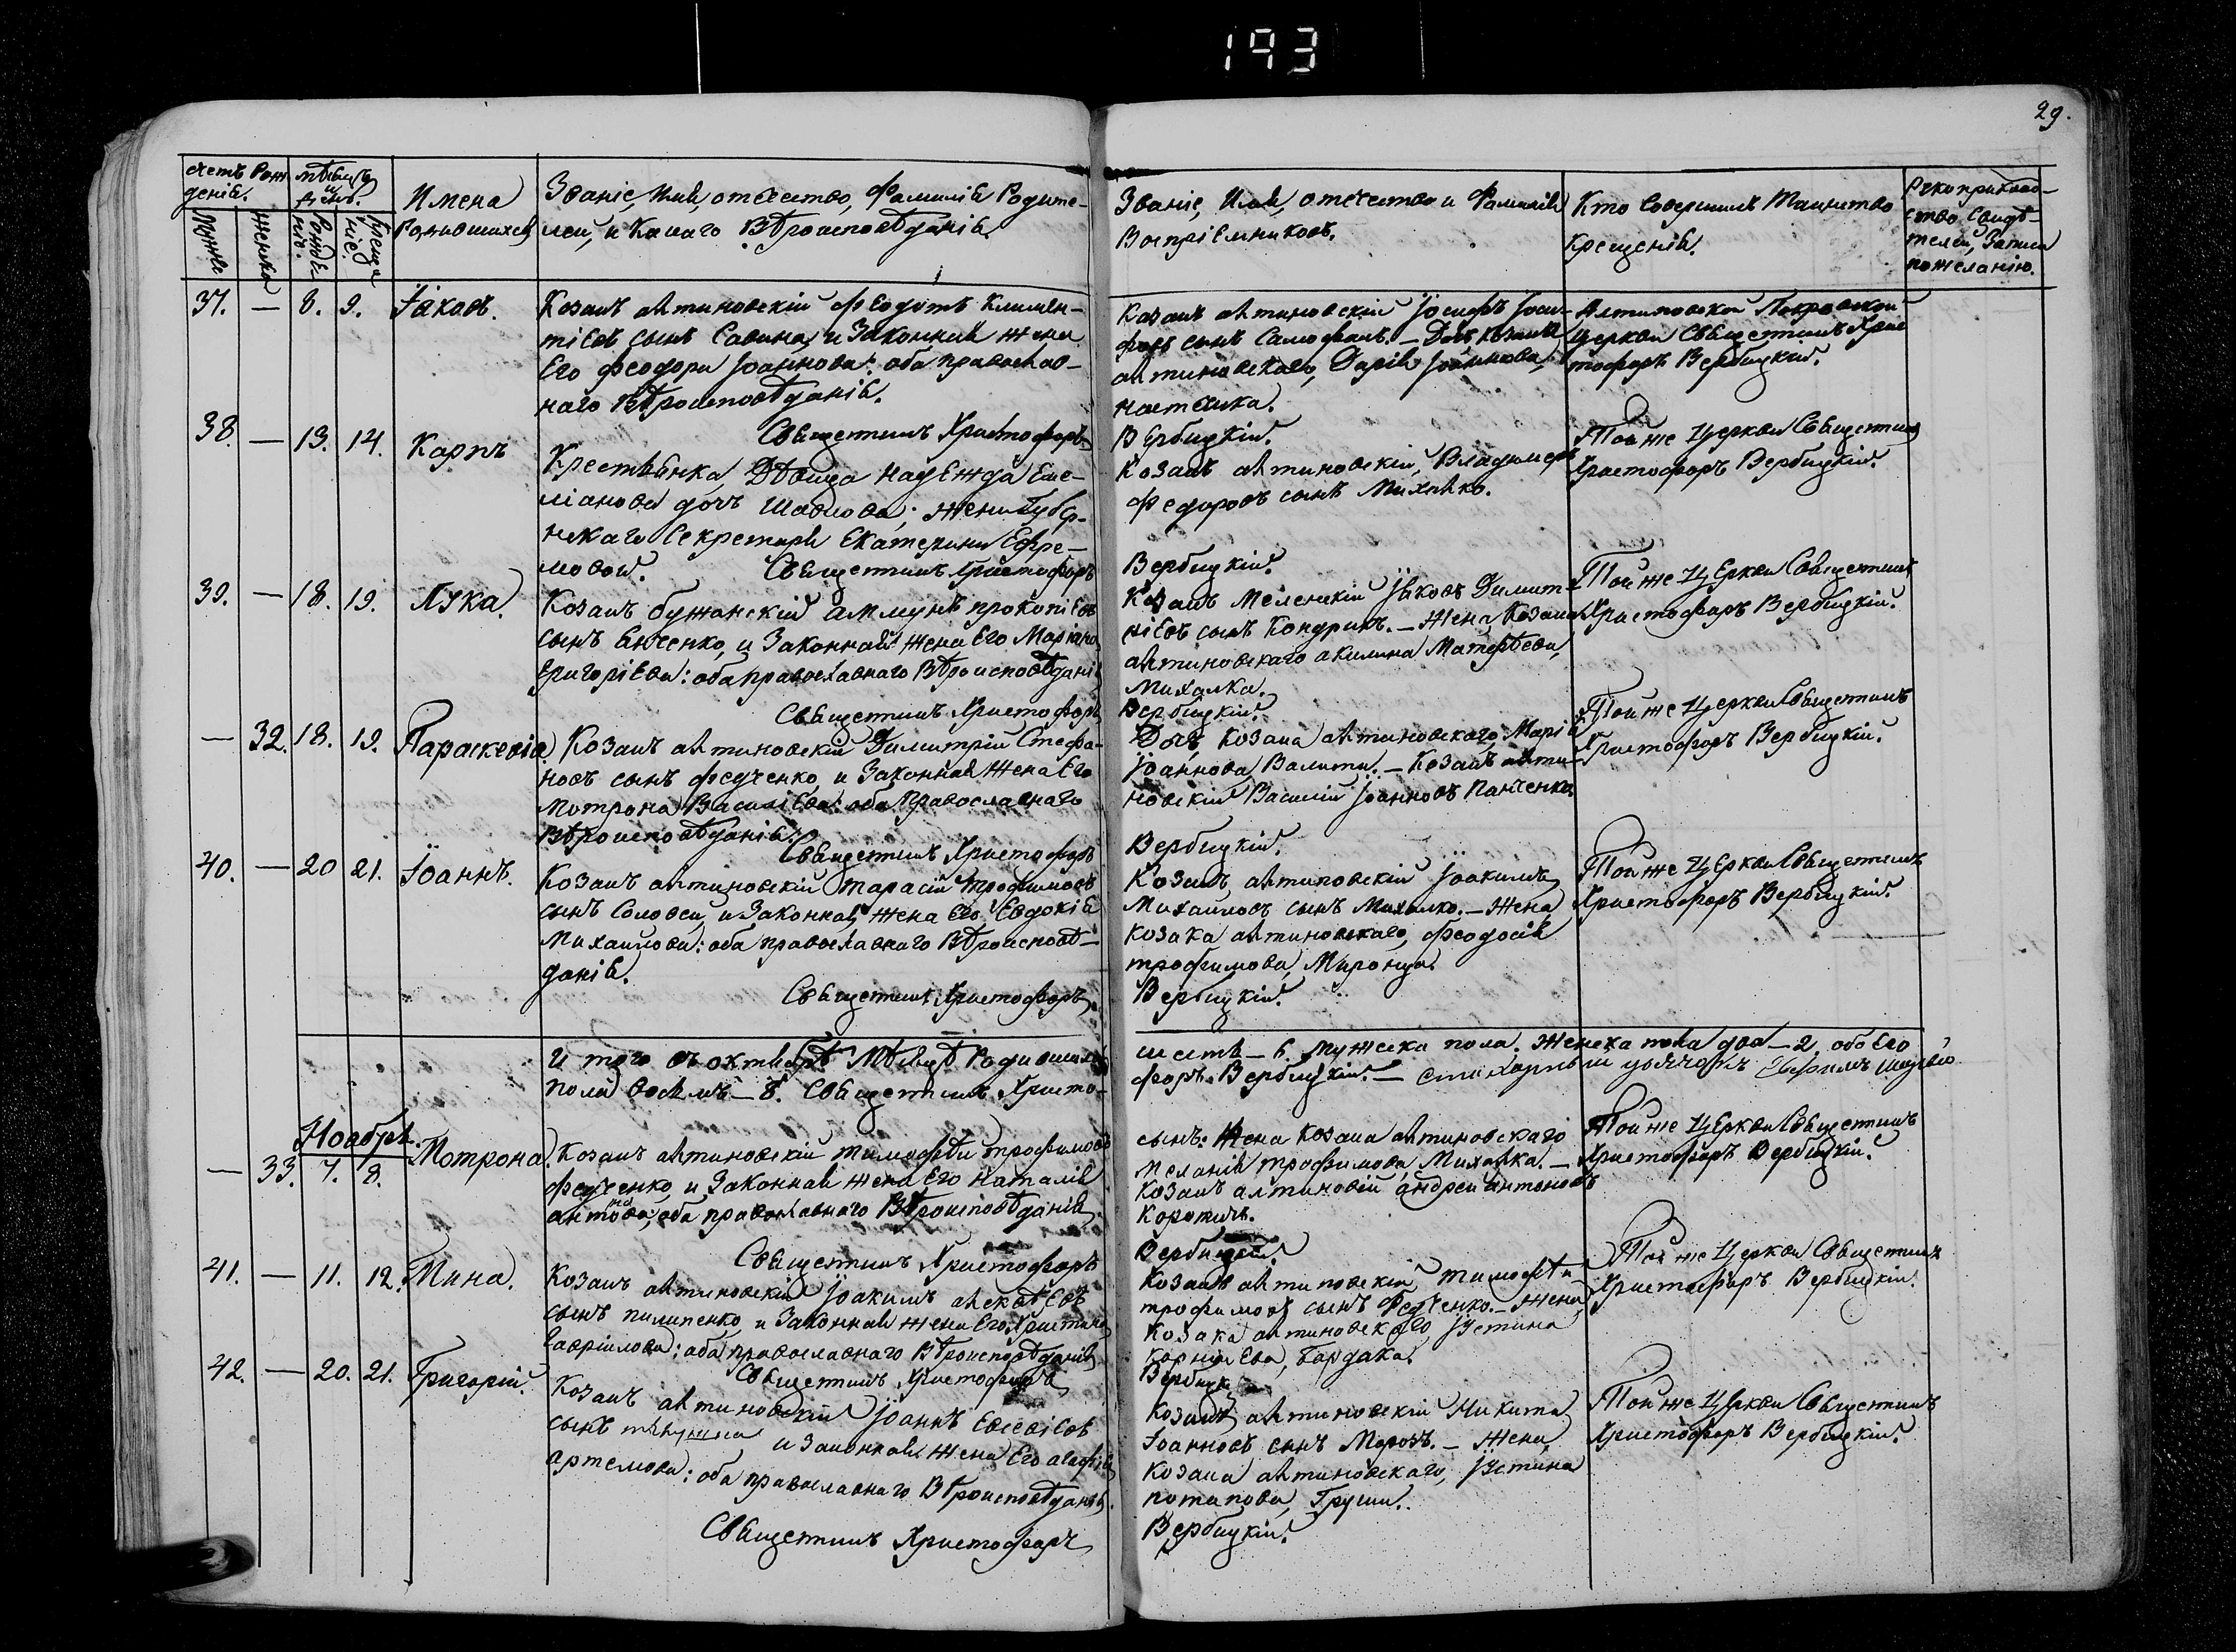 193
29.
Счетъ Рож-
денія.
Мѣсяцъ
и
день.
Мужес
Женска
Рожде-
нія.
Креще-
нія.
Имена
Родившихся
Званіе, Имя, отчество, Фамилія Родите-
лей, и Какаго Вѣроисповѣданія.
Званіе, Имя, отчество и Фамилія
Воспріемниковъ.
Кто Совершилъ Таинство
Крещенія.
Рукоприклад-
ство Свидѣ-
телей, Записи
по желанію.
37. — 8. 9. Іаковъ.
Козакъ алтиновскій Феодотъ Климен-
тіевъ сынъ Савина, и Законная жена
Его Феодора Іоаннова: оба православ-
наго Вѣроисповѣданія.
Священникъ Христофоръ
Козакъ алтиновскій Іосифъ Іоси-
фовъ сынъ Самофалъ. — Дочь козака
алтиновскаго, Дарія Іоаннова,
Алтиновской Покровской
Церкви Священникъ Хрис
тофоръ Вербицкій.
Вербицкій.
38. — 13. 14. Карпъ
Крестьянка, Дѣвица Надежда Еме-
ліанова дочь Шадлова; жени Губер-
нскаго Секретаря Екатерини Ефре-
мовой. Священникъ Христофоръ
Козакъ алтиновскій, Владимеръ
Федоровъ сынъ Михалко.
Вербицкій.
Той же Церкви Священникъ
Христофоръ Вербицкій.
39. — 18. 19. Лука.
Козакъ бужанскій прокопіевъ
сынъ и Законная жена Его Маріана
Григоріева: оба православнаго Вѣроисповѣданія
Священникъ Христофоръ
Козакъ Меленскій Іаковъ Димит-
ріевъ сынъ Кондратъ. — Жена Козака
алтиновскаго акилина Матфѣева,
Михалка.
Вербицкій.
Той же Церкви Священникъ
Христофоръ Вербицкій.
— 32. 18. 19. Параскевія
Козакъ алтиновскій Димитрій Стефа-
новъ сынъ Федченко, и Законная жена Его
Мотрона Василіева: оба Православнаго
Вѣроисповѣданія.
Священникъ Христофоръ
Дочь Козака алтиновскаго, Марія
Іоаннова, — Козакъ алти-
новскій Василій Іоанновъ Панченко.
Вербицкій.
Той же Церкви Священникъ
Христофоръ Вербицкій.
40. — 20 21. Іоаннъ.
Козакъ алтиновскій Тарасій Трофимовъ
сынъ Соловей, и Законная жена Его Евдокія
Михайлова: оба православнаго Вѣроисповѣ-
данія.
Священникъ Христофоръ
Козакъ алтиновскій Іоакимъ
Михайловъ сынъ Михалко. — Жена
козака алтиновскаго, Феодосія
трофимова, Миронца.
Вербицкій.
Той же Церкви Священникъ
Христофоръ Вербицкій.
И того въ октябрѣ Мѣсяцѣ Родившихся
шесть — 6. Мужеска пола. Женска пола два — 2. обоего
пола восемь — 8. Священникъ Христо-
форъ Вербицкій. — стихарный дьячокъ
Ноября.
— 33. 7. 8. Мотрона.
Козакъ алтиновскій Тимофѣй трофимовъ
Федченко, и Законная жена Его Наталія
антонова, оба православнаго Вѣроисповѣданія
Священникъ Христофоръ
сынъ. Жена козака алтиновскаго
Меланія трофимова, Михалка. —
Козакъ алтиновскій андрей антоновъ
Коротичъ.
Вербицкій.
Той же Церкви Священникъ
Христофоръ Вербицкій.
41. — 11. 12. Мина.
Козакъ алтиновскій Іоакимъ алексѣевъ
сынъ пилипенко, и Законная жена Его Христина
Гавріилова: оба православнаго Вѣроисповѣданія
Священникъ Христофоръ
Козакъ алтиновскій Тимофѣй
трофимовъ сынъ Федченко. — Жена
Козака алтиновскаго Іустина
Корніліева, Бардака.
Той же Церкви Священникъ
Христофоръ Вербицкій.
42. — 20. 21. Григорій.
Козакъ алтиновскій Іоаннъ Евсевіевъ
сынъ и Законная жена Его агафія
артемова: оба православнаго Вѣроисповѣданія.
Священникъ Христофоръ
Козакъ алтиновскій Никита
Іоанновъ сынъ Морозъ. — Жена
Козака алтиновскаго, Іустина
потапова, Груши.
Вербицкій.
Той же Церкви Священникъ
Христофоръ Вербицкій.